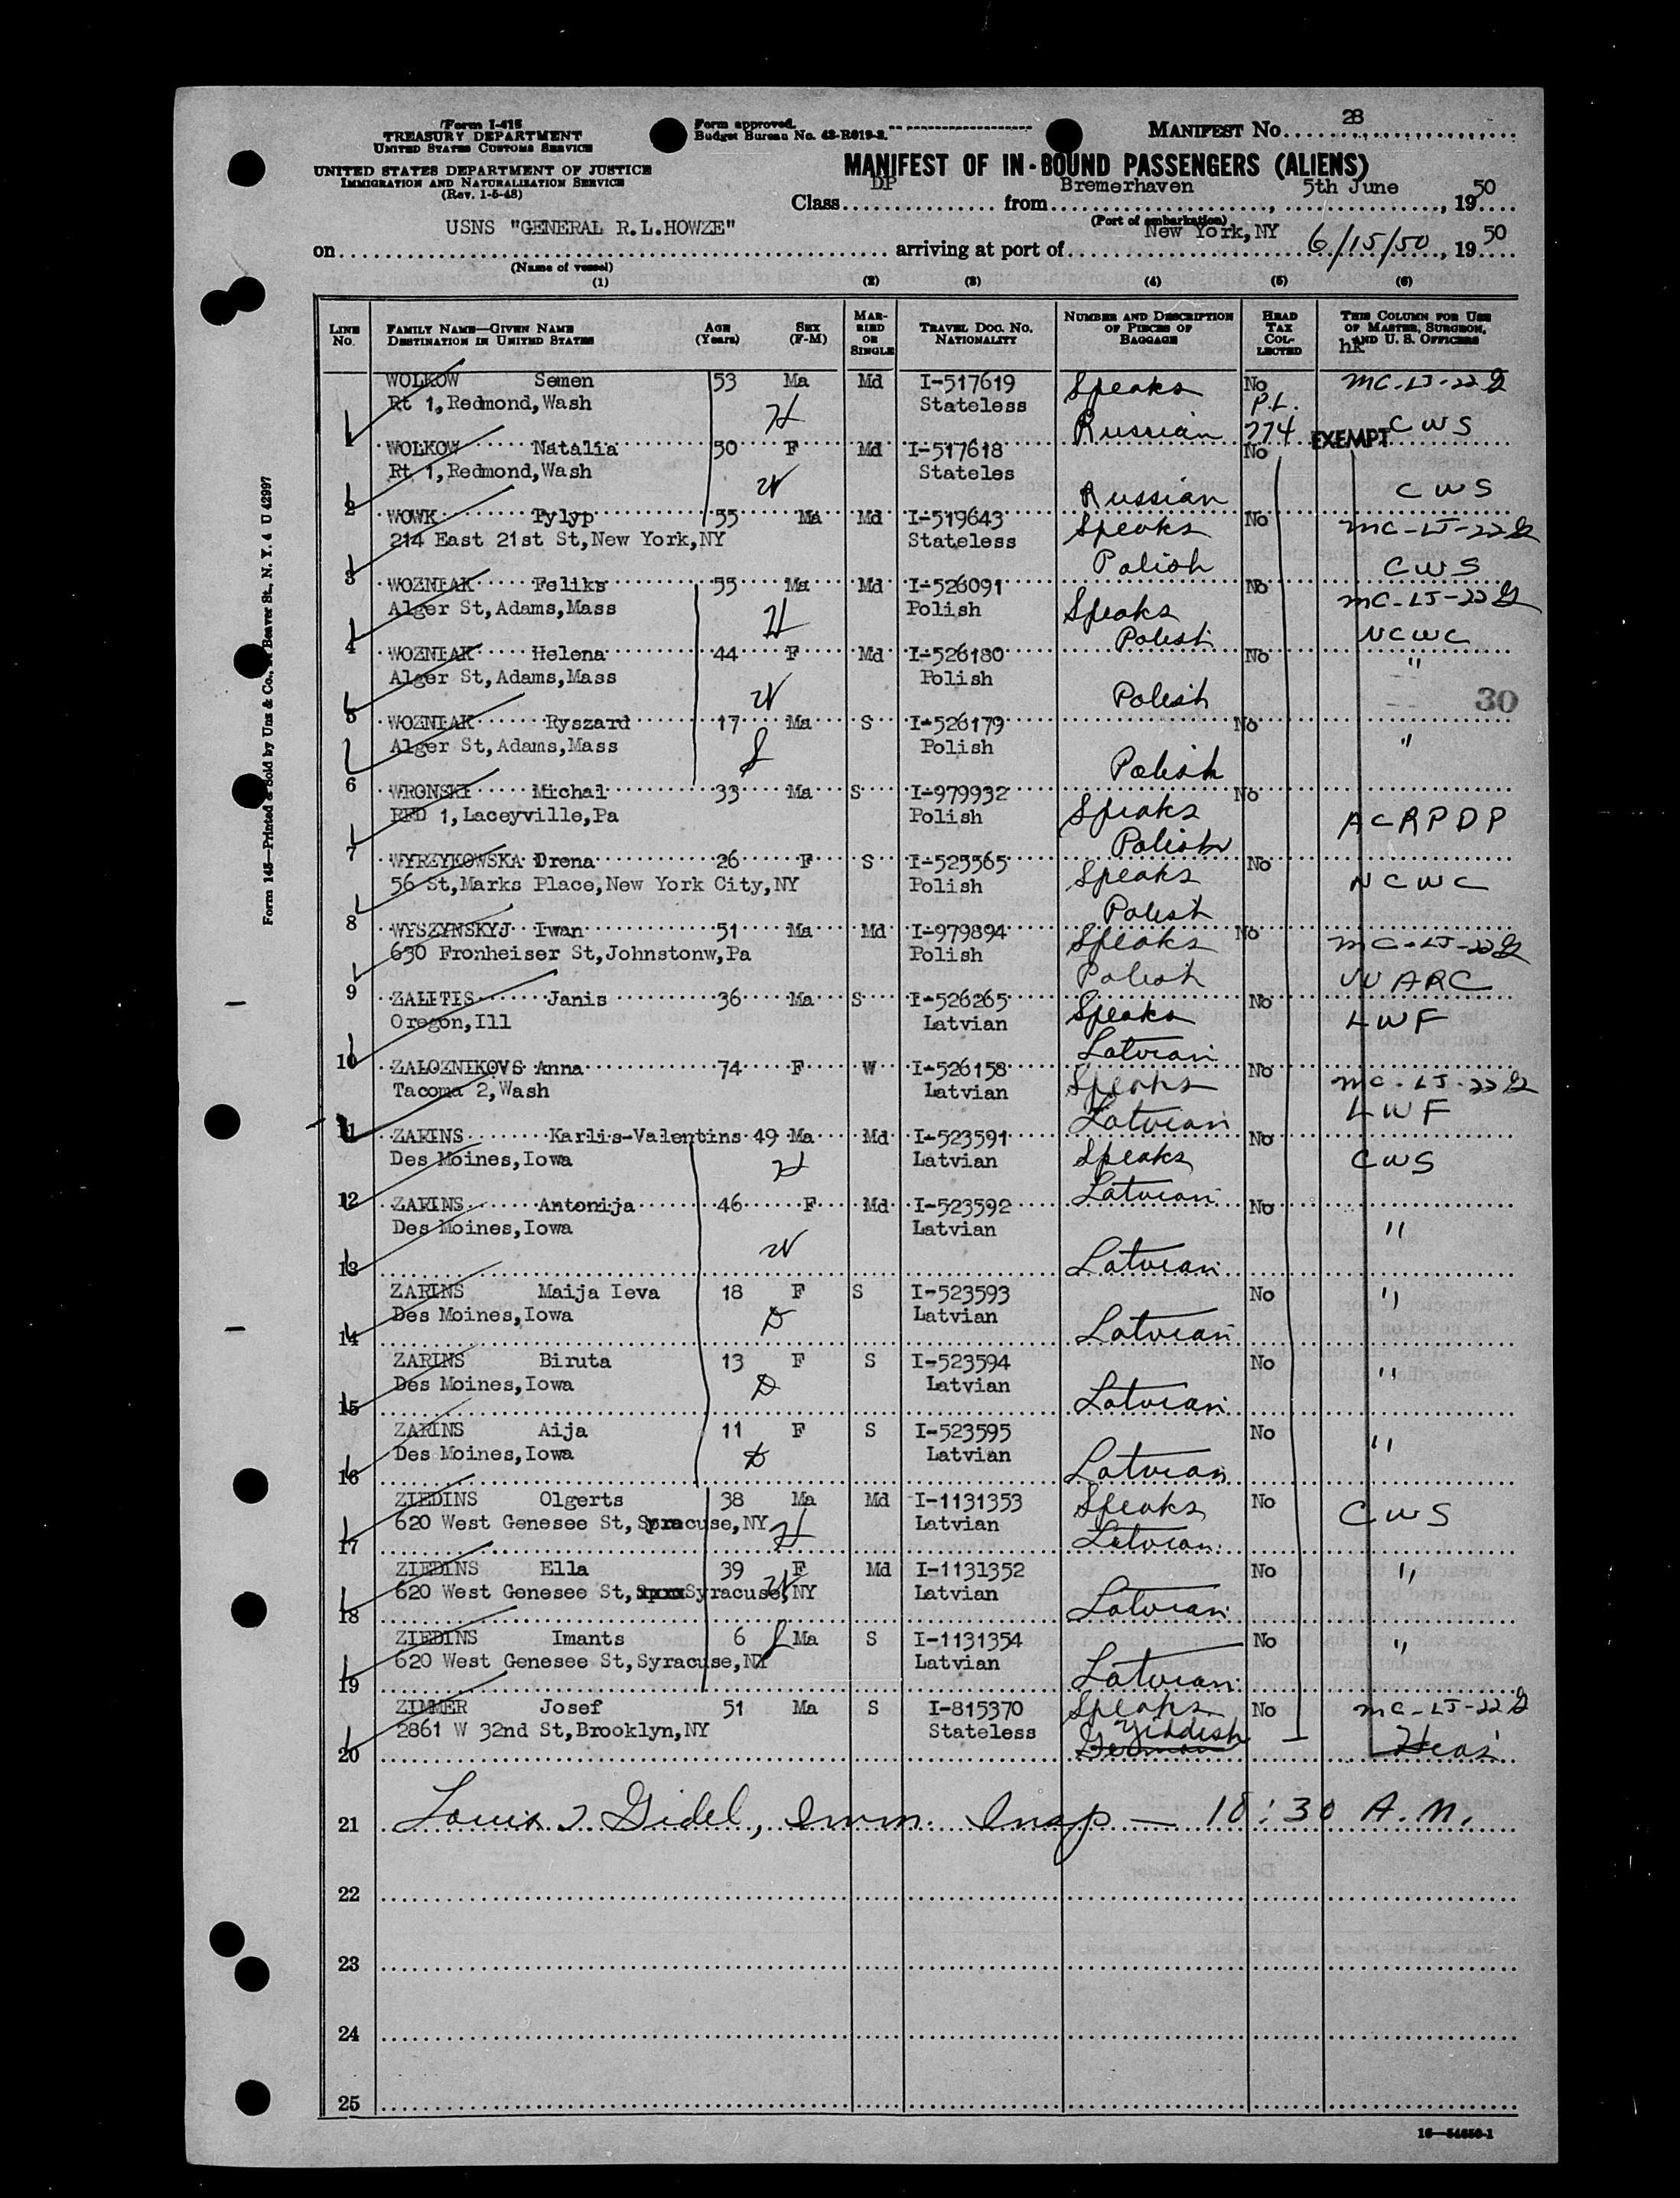 Form I-415
TREASURY DEPARTMENT
UNITED STATES CUSTOMS SERVICE
UNITED STATES DEPARTMENT OF JUSTICE
IMMIGRATION AND NATURALIZATION SERVICE
(Rev. 1-5-48)
Form approved.
Budget Bureau No. 43-R019-3.
MANIFEST No. 28
MANIFEST OF IN-BOUND PASSENGERS (ALIENS)
Class DP from Bremerhaven, 5th June, 1950
(Port of embarkation)
on USNS "GENERAL R.L.HOWZE" arriving at port of New York, NY 6/15/50, 1950
(Name of vessel)
(1) (2) (3) (4) (5) (6)
LINE No. FAMILY NAME—GIVEN NAME DESTINATION IN UNITED STATES AGE (Years) SEX (F-M) MARRIED OR SINGLE TRAVEL DOC. NO. NATIONALITY NUMBER AND DESCRIPTION OF PIECES OF BAGGAGE HEAD TAX COLLECTED THIS COLUMN FOR USE OF MASTER, SURGEON, AND U. S. OFFICERS
hk
WOLKOW Semen 53 Ma Md I-517619 Speaks No MC-LJ-22
Rt 1,Redmond,Wash H Stateless Russian P.L. 774 EXEMPT CWS
1
WOLKOW Natalia 50 F Md I-517618 No
Rt 1,Redmond,Wash W Stateles Russian CWS
2
WOWK Pylyp 55 Ma Md I-519643 Speaks No MC-LJ-22
214 East 21st St,New York,NY Stateless Polish CWS
3
WOZNIAK Feliks 55 Ma Md I-526091 Speaks No MC-LJ-22
Alger St,Adams,Mass H Polish Polish NCWC
4
WOZNIAK Helena 44 F Md I-526180 No "
Alger St,Adams,Mass W Polish Polish
30
5
WOZNIAK Ryszard 17 Ma S I-526179 No "
Alger St,Adams,Mass S Polish Polish
6
WRONSKI Michal 33 Ma S I-979932 Speaks No
RFD 1,Laceyville,Pa Polish Polish ACRPDP
7
WYRZYKOWSKA Drena 26 F S I-525565 Speaks No
56 St,Marks Place,New York City,NY Polish Polish NCWC
8
WYSZYNSKYJ Iwan 51 Ma Md I-979894 Speaks No MC-LJ-22
630 Fronheiser St,Johnstonw,Pa Polish Polish UUARC
9
ZALITIS Janis 36 Ma S I-526265 Speaks No
Oregon,Ill Latvian Latvian LWF
10
ZALOZNIKOVS Anna 74 F W I-526158 Speaks No MC-LJ-22
Tacoma 2,Wash Latvian Latvian LWF
11
ZARINS Karlis-Valentins 49 Ma Md I-523591 Speaks No
Des Moines,Iowa H Latvian Latvian CWS
12
ZARINS Antonija 46 F Md I-523592 No
Des Moines,Iowa W Latvian Latvian "
13
ZARINS Maija Ieva 18 F S I-523593 No "
Des Moines,Iowa D Latvian Latvian
14
ZARINS Biruta 13 F S I-523594 No "
Des Moines,Iowa D Latvian Latvian
15
ZARINS Aija 11 F S I-523595 No "
Des Moines,Iowa D Latvian Latvian
16
ZIEDINS Olgerts 38 Ma Md I-1131353 Speaks No CWS
620 West Genesee St,Syracuse,NY H Latvian Latvian
17
ZIEDINS Ella 39 F Md I-1131352 No "
620 West Genesee St,Syracuse,NY W Latvian Latvian
18
ZIEDINS Imants 6 S Ma S I-1131354 No "
620 West Genesee St,Syracuse,NY Latvian Latvian
19
ZIMMER Josef 51 Ma S I-815370 Speaks No MC-LJ-22
2861 W 32nd St,Brooklyn,NY Stateless Yiddish German Hias
20
21 Louis J Gidel, Imm. Insp — 10:30 A.M.
22
23
24
25
16—54650-1
Form 145—Printed & Sold by Unz & Co., Beaver St., N. Y. 4 U 42997